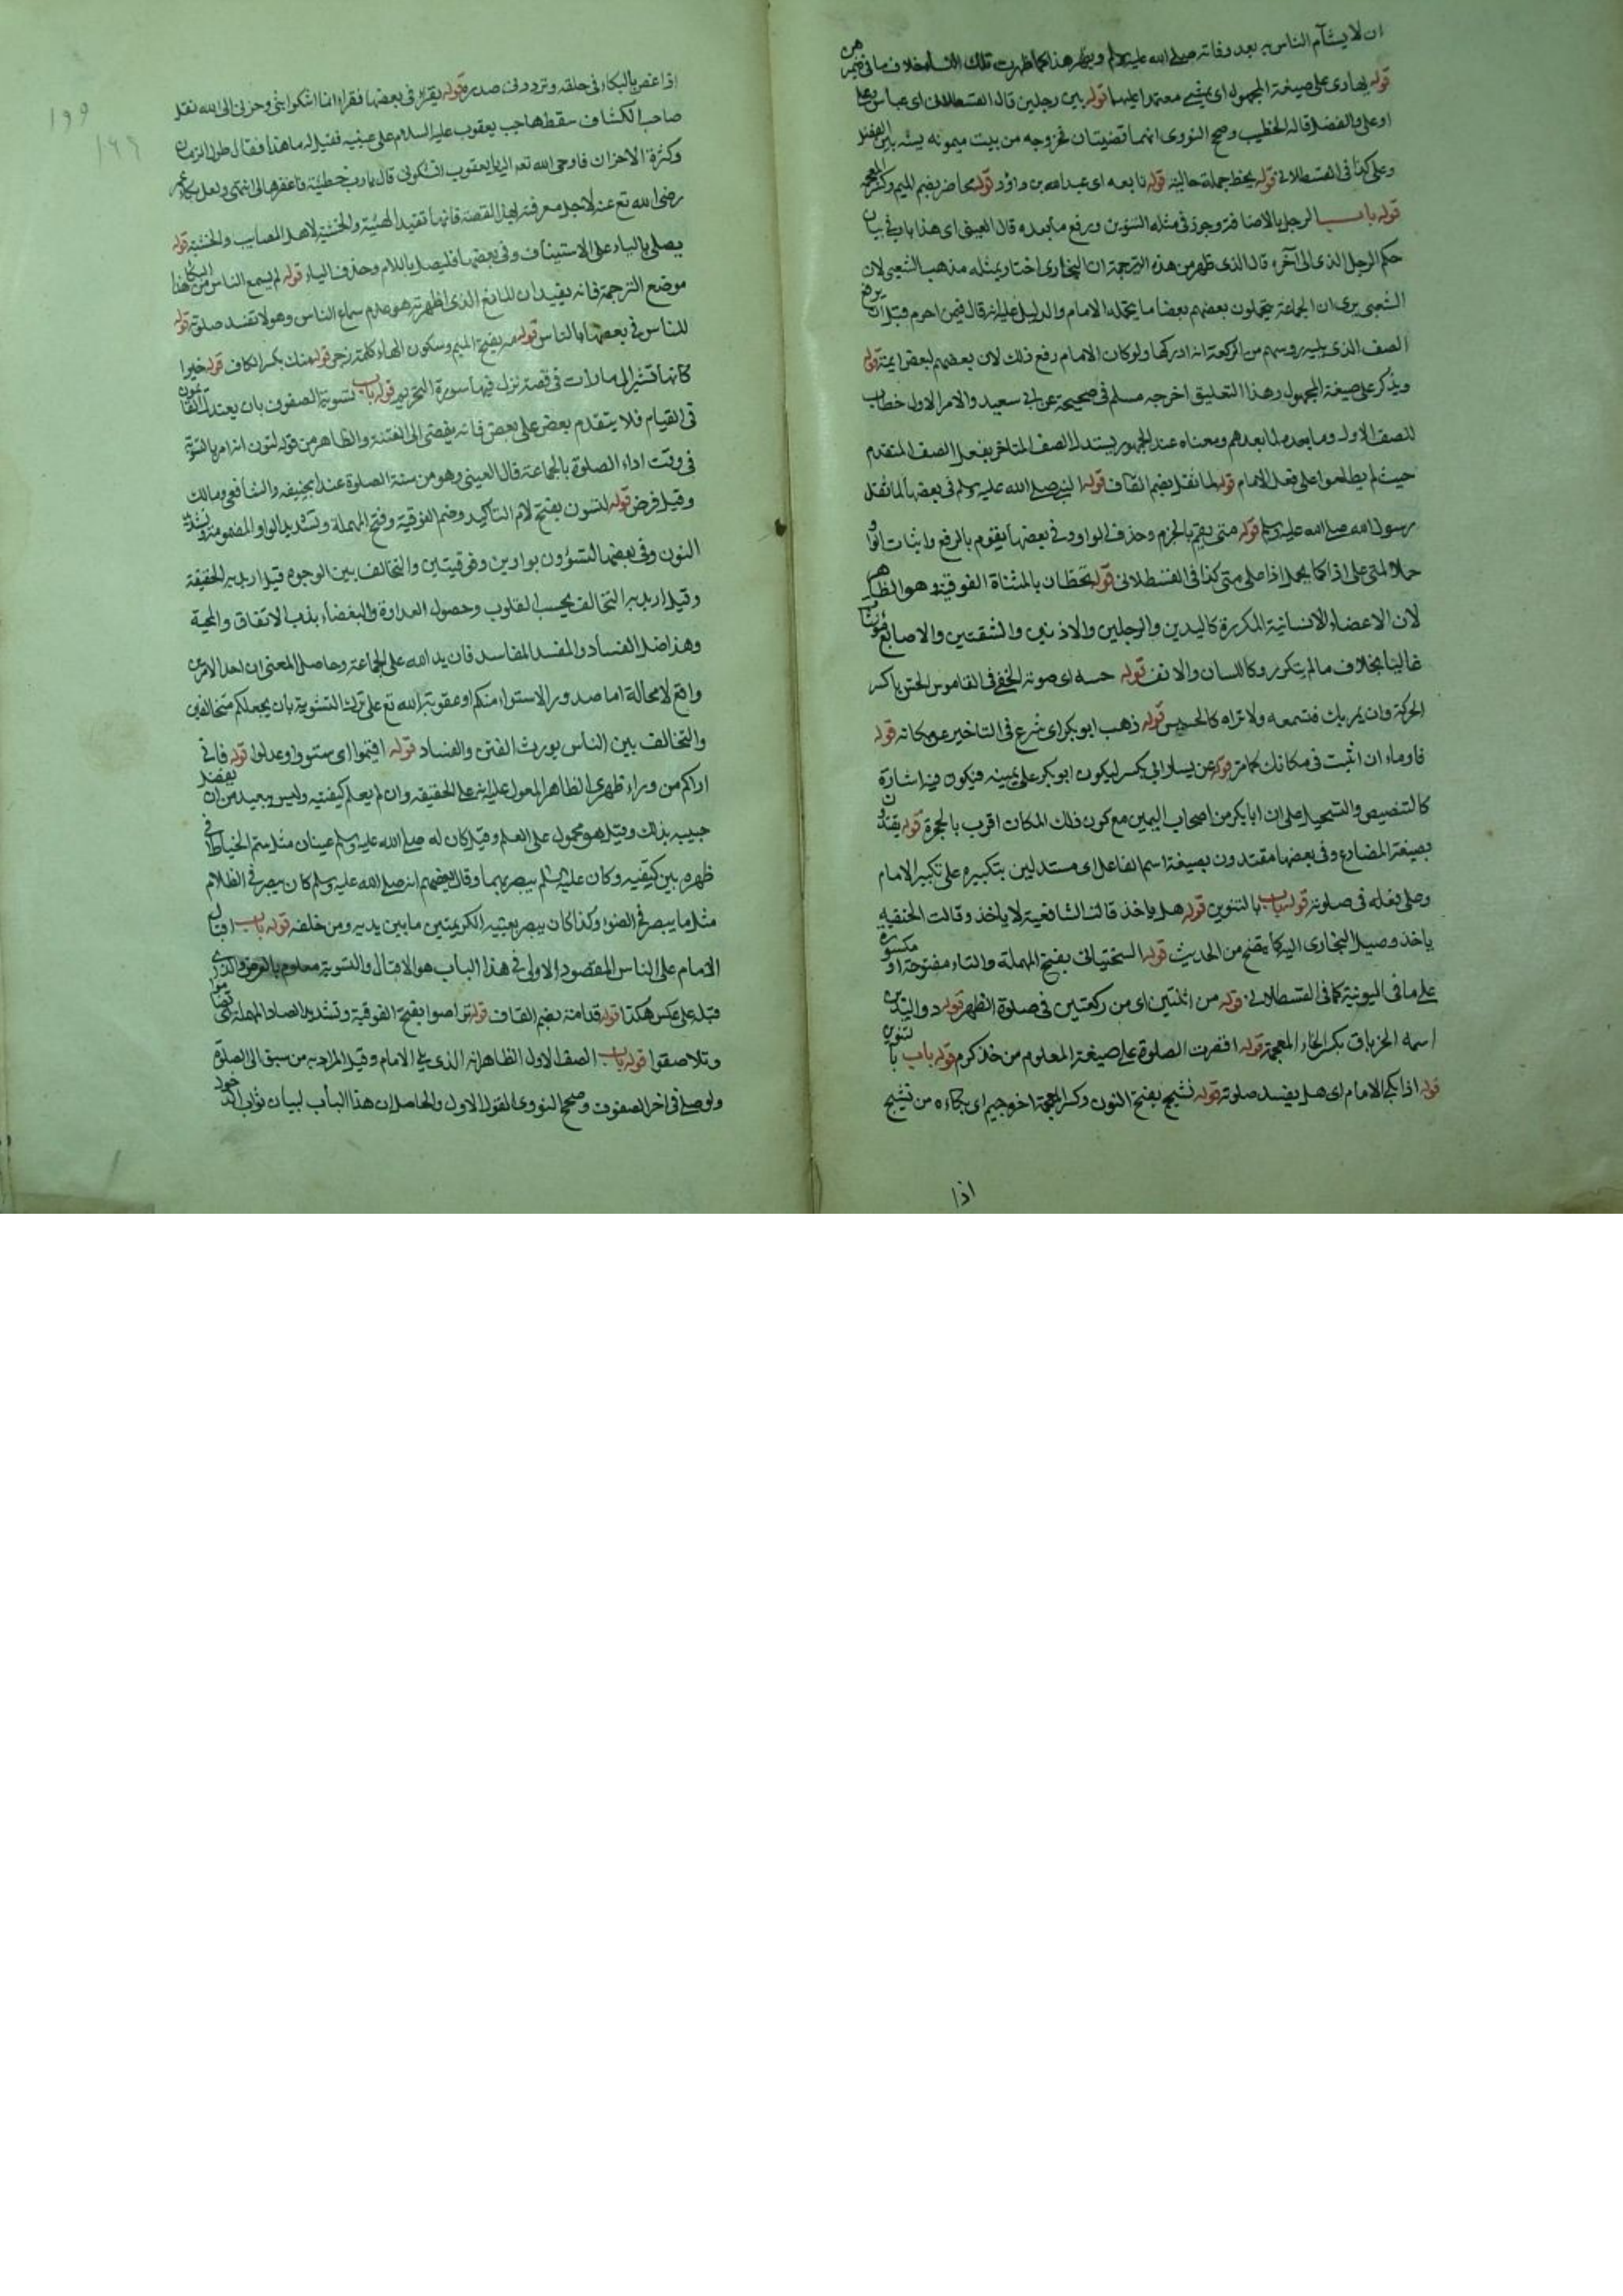 ان لا يتشأم الناس به بعد وفاته صلى الله عليه وسلم
قوله يهادى على صيغة المجهول اى يمشى معتمدا عليهما قوله بين رجلين قال القسطلانى اى عباس وعلى
او على والفضل قاله الخطيب وصحح النووى انهما قضيتان فخروجه من بيت ميمونه
وعلى كذا فى القسطلانى قوله يخط جملة حالية قوله تابعه اى عبد الله بن داود قوله محاضر بضم الميم وكسر المعجمة
قوله باب الرجل بالاضافة وجوز فى مثله التنوين ورفع ما بعده قال العينى اى هذا باب فى بيان
حكم الرجل الذى الى آخره قال الذى ظهر من هذه الترجمة ان البخارى اختار بمثله مذهب الشعبى لان
الشعبى يرى ان الجماعة يتحملون بعضهم بعضا ما يتحمله الامام والدليل عليه انه قال فيمن احرم قبل ان يرفع
الصف الذى يليه رؤسهم من الركعة انه ادركها ولو كان الامام رفع ذلك لان بعضهم لبعض ايمة قوله
ويذكر على صيغة المجهول وهذا التعليق اخرجه مسلم فى صحيحه عن ابى سعيد والامر الاول خطاب
للصف الاول وما بعده لما بعدهم ومعناه عند الجمهور يستدل الصف المتاخر بفعل الصف المتقدم
حيث لم يطلعوا على فعل الامام قوله لما ثقل بضم القاف قوله النبى صلى الله عليه وسلم فى بعضها لما ثقل
رسول الله صلى الله عليه وسلم قوله متى يقم بالجزم وحذف الواو وفى بعضها يقوم بالرفع واثبات الواو
حملا لمتى على اذا كما يحمل اذا على متى كذا فى القسطلانى قوله تخطان بالمثناة الفوقية وهو الظاهر
لان الاعضاء الانسانية المكررة كاليدين والرجلين والاذنين والشفتين والاصابع مؤنثا
غالبا بخلاف ما لم يتكرر كاللسان والانف قوله حسه اى صوته الخفى فى القاموس الحس بالكسر
الحركة وان يمر بك فتسمعه ولا تراه كالحسيس قوله ذهب ابو بكر اى شرع فى التاخير عن مكانه قوله
فاوماء ان اثبت فى مكانك كما مر قوله عن يسار ابى بكر ليكون ابو بكر على يمينه فيكون فيه اشارة
كالتنصيص والتسجيل على ان ابا بكر من اصحاب اليمين مع كون ذلك المكان اقرب بالحجرة قوله يقتدون
بصيغة المضارع وفى بعضها مقتدون بصيغة اسم الفاعل اى مستدلين بتكبيره على تكبير الامام
وعلى فعله فى صلوته قوله باب بالتنوين قوله هل ياخذ قالت الشافعية لا ياخذ وقالت الحنفية
ياخذ وميل البخارى اليه كما يتضح من الحديث قوله السختيانى بفتح المهملة والتاء مفتوحة او مكسورة
على ما فى اليونية كما فى القسطلانى قوله من اثنتين اى من ركعتين فى صلوة الظهر قوله ذو اليدين
اسمه الخرباق بكسر الخاء المعجمة قوله اقصرت الصلوة على صيغة المعلوم من حد كرم قوله باب بالتنوين
قوله اذا بكى الامام اى هل يفسد صلوته قوله نشيج بفتح النون وكسر المعجمة اخره جيم اى بكاءه من نشيج
اذا
١٩٩
١٩٩
اذا غص بالبكاء فى حلقه وتردد فى صدره قوله يقرأ فى بعضها فقرأ انما اشكوا بثى وحزنى الى الله نقل
صاحب الكشاف سقط حاجب يعقوب عليه السلام على عينيه فقيل له ما هذا فقال طول الزمان
وكثرة الاحزان فاوحى الله تعه اليه يا يعقوب اتشكونى قال يا رب خطيئة فاغفرها لى انتهى ولعل بكاء عمر
رضى الله تع عنه لاجل معرفته لهذه القصة فانها تفيد الهيبة والخشية لاهل المصايب والخشية قوله
يصلى بالياء على الاستيناف وفى بعضها فليصل باللام وحذف الياء قوله لم يسمع الناس من البكاء هذا
موضع الترجمة فانه يفيد ان المانع الذى اظهرته هو عدم سماع الناس وهو لا تفسد صلوته قوله
للناس فى بعضها بالناس قوله مه بفتح الميم وسكون الهاء كلمة زجر قوله منك بكسر الكاف قوله خيرا
كانها تشير الى ما رات فى قصة نزل فيها سورة التحريم قوله باب تسوية الصفوف بان يعتدل القائمون
فى القيام فلا يتقدم بعض على بعض فانه يفضى الى الفتنة والظاهر من قوله لتسون انه امر بالتسوية
فى وقت اداء الصلوة بالجماعة قال العينى وهو من سنة الصلوة عند ابحنيفه والشافعى ومالك
وقيل فرض قوله لتسون بفتح لام التاكيد وضم الفوقية وفتح المهملة وتشديد الواو المضمومة وتشديد
النون وفى بعضها لتسوون بواوين وفوقيتين والتخالف بين الوجوه قيل اريد به الحقيقة
وقيل اريد به التخالف بحسب القلوب وحصول العداوة والبغضاء يذهب الاتفاق والمحبة
وهذا اصل الفساد والمفسد المفاسد فان يد الله على الجماعة وحاصل المعنى ان احد الامرين
واقع لا محالة اما صدور الاستواء منكم او عقوبة الله تع على ترك التسوية بان يجعلكم متخالفين
والتخالف بين الناس يورث الفتن والفساد قوله اقيموا اى ستووا وعدلوا قوله فانى
اراكم من وراء ظهرى الظاهر المعول عليه انه على الحقيقة وان لم يعلم كيفيته وليس ببعيد من ان يفضل
حبيبه بذلك وقيل هو محمول على العلم وقيل كان له صلى الله عليه وسلم عينان مثل سم الخياط فى
ظهره بين كتفيه وكان عليه السلم يبصر بهما وقال بعضهم انه صلى الله عليه وسلم كان يبصر فى الظلام
مثل ما يبصر فى الضوء وكذا كان يبصر بعينيه الكريمتين ما بين يديه ومن خلفه قوله باب اقبال
الامام على الناس المقصود الاولى فى هذا الباب هو الاقبال والتسوية معلوم بالعرض والذى
قبله على عكس هكذا قوله قدامة بضم القاف قوله تراصوا بفتح الفوقية وتشديد الصاد المهملة اى تضاموا
وتلاصقوا قوله باب الصف الاول الظاهر انه الذى يلى الامام وقيل المراد به من سبق الى الصلوة
ولو صلى فى اخر الصفوف وصحح النووى القول الاول والحاصل ان هذا الباب لبيان ثواب